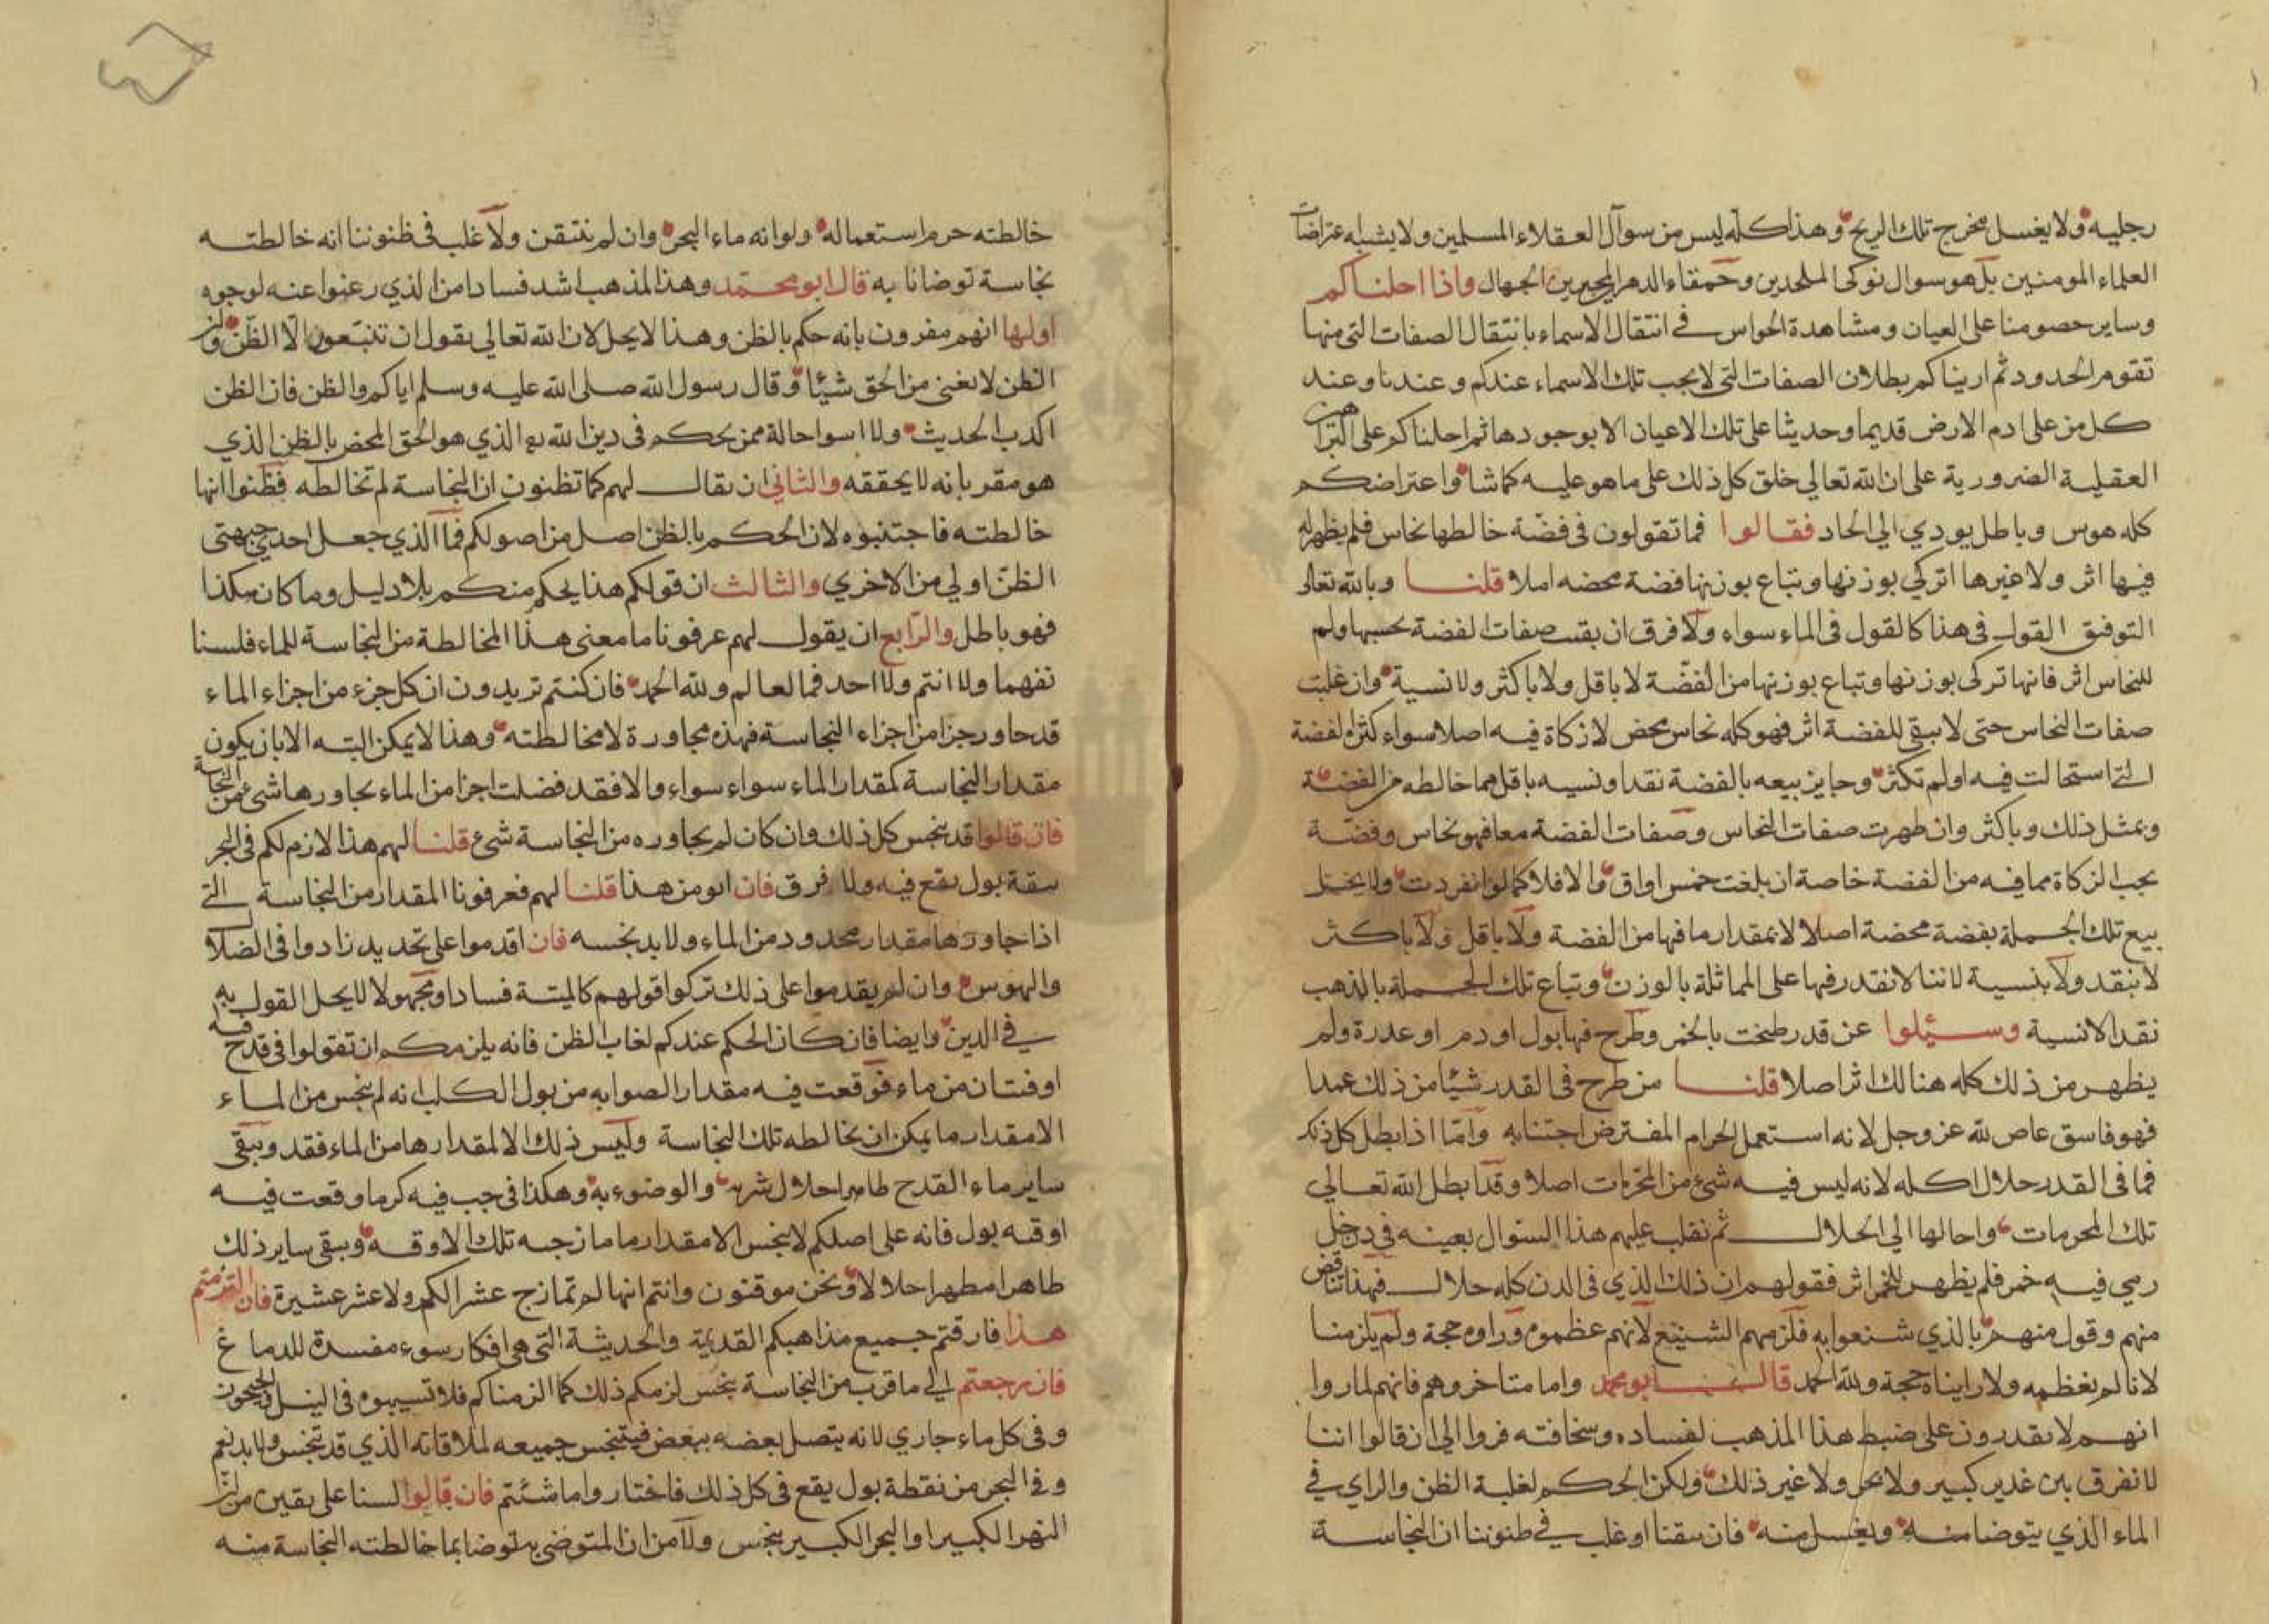 رجليه ولا يغسل مخرج تلك الريح وهذا كله ليس من سوآل العقلاء المسلمين ولا يشبه اعتراضات
العلماء المومنين بل هو سوال نوكى الملحدين وحمقاء الدهر المجبرين الجهال واذا احلناكم
وساير خصومنا على العيان ومشاهدة الحواس في انتقال الاسماء بانتقال الصفات التي منها
تقوم الحدود ثم اريناكم بطلان الصفات التي لا يجب تلك الاسماء عندكم وعندنا وعند
كل من على ادم الارض قديما وحديثا على تلك الاعيان الا بوجودها ثم احلناكم على البراهن
العقلية الضرورية على ان الله تعالي خلق كل ذلك على ما هو عليه كما شا واعتراضكم
كله هوس وباطل يودي الي الحاد فقالوا فما تقولون في فضّة خالطها نحاس فلم يظهر له
فيها اثر ولا غيرها اتركي بوزنها وتباع بوزنها فضة محضه ام لا قلنا وبالله تعالى
التوفيق القول في هذا كالقول في الماء سواء ولا فرق ان بقيت صفات الفضة بحسبها ولم
للنحاس اثر فانها تركى بوزنها وتباع بوزنها من الفضّة لا باقل ولا باكثر ولا نسية وان غلبت
صفات النحاس حتى لا يبقى للفضة اثر فهو كله نحاس محض لا زكاة فيه اصلا سواء كثر الفضة
التي استحالت فيه او لم تكثر وجايز بيعه بالفضة نقدا ونسيه باقل مما خالطه من الفضة
وبمثل ذلك وباكثر وان ظهرت صفات النحاس وصفات الفضة معا فهو نحاس وفضّة
يجب الزكاة مما فيه من الفضة خاصة ان بلغت خمس اواق والا فلا كما لو انفردت ولا يحل
بيع تلك الجملة بفضة محضة اصلا لا بمقدار ما فيها من الفضة ولا باقل ولا باكثر
لا بنقد ولا بنسية لاننا لا نقدر فيها على المماثلة بالوزن وتباع تلك الجملة بالذهب
نقدا لا نسية وسئيلوا عن قدر طبخت بالخمر وطرح فيها بول او دم او عدرة ولم
يظهر من ذلك كله هنالك اثر اصلا قلنا من طرح في القدر شيئا من ذلك عمدا
فهو فاسق عاص لله عز وجل لانه استعمل الحرام المفترض اجتنابه وامّا اذا بطل كل ذلك
فما في القدر حلال اكله لانه ليس فيه شئ من المحرّمات اصلا وقد ابطل الله تعالي
تلك المحرمات واحالها الي الحلال ثم نقلب عليهم هذا السئوال بعينه في دن خل
رمي فيه خمر فلم يظهر للخمر اثر فقولهم ان ذلك الذي في الدن كله حلال فهذا تناقض
منهم وقول منهم بالذي شنعوا به فلزمهم الشنيع لانهم عظموه وراوه حجة ولم يلزمنا
لانا لم نعظمه ولا رايناه حجة ولله الحمد قال ابو محمد واما متاخروهم فانهم لما راوا
انهم لا يقدرون على ضبط هذا المذهب لفساده وسخافته فروا الي ان قالوا اننا
لا نفرق بين غدير كبير ولا بحر ولا غير ذلك ولكن الحكم لغلبة الظن والراي في
الماء الذي يتوضا منه ويغسل منه فان تيقنا او غلب في ظنوننا ان النجاسة
خالطته حرم استعماله ولو انه ماء البحر وان لم نتيقن ولا غلب في ظنوننا انه خالطته
نجاسة توضانا به قال ابو محمّد وهذا المذهب اشد فسادا من الذي رغبوا عنه لوجوه
اولها انهم مقرون بانه حكم بالظن وهذا لا يحل لان الله تعالي يقول ان تتبعون الا الظن وان
الظن لا يغني من الحق شيئا وقال رسول الله صلى الله عليه وسلم اياكم والظن فان الظن
اكذب الحديث ولا اسوا حالة ممن يحكم في دين الله تع الذي هو الحق المحض بالظن الذي
هو مقر بانه لا يحققه والثاني ان يقال لهم كما تظنون ان النجاسة لم تخالطه فظنوا انها
خالطته فاجتنبوه لان الحكم بالظن اصل من اصولكم فما الذي جعل احدي جهتي
الظنّ اولي من الاخري والثالث ان قولكم هذا يحكم منكم بلا دليل وما كان هكذا
فهو باطل والرّابع ان يقول لهم عرفونا ما معنى هذا المخالطة من النجاسة للماء فلسنا
نفهما ولا انتم ولا احد فما لعالم ولله الحمد فان كنتم تريدون ان كل جزء من اجزاء الماء
قد جاور جزا من اجزاء النجاسة فهذه مجاورة لا مخالطته وهذا لا يمكن البته الا بان يكون
مقدار النجاسة كمقدار الماء سواء سواء والا فقد فضلت اجزا من الماء يجاورها شئ من النجاسة
فان قالوا قد ينجس كل ذلك وان كان لم يجاوره من النجاسة شئ قلنا لهم هذا لازم لكم في البحر
بنقة بول يقع فيه ولا فرق فان ابو من هذا قلنا لهم فعرفونا المقدار من النجاسة التي
اذا جاورها مقدار محدود من الماء ولا بد نجسه فان اقدموا على تحديد زادوا في الضلال
والهوس وان لم يقدموا على ذلك تركوا قولهم كالميتة فسادا ومجهولا لا يحل القول به
في الدين وايضا فان كان الحكم عندكم لغاب الظن فانه يلزمكم ان تقولوا في قدح فيه
اوقتان من ماء فوقعت فيه مقدار الصوابه من بول الكلب انه لم ينجس من الماء
الا مقدار ما يمكن ان يخالطه تلك النجاسة وليس ذلك الا لمقدارها من الماء فقد وبقى
ساير ماء القدح طاهرا حلال شربه والوضوء به وهكذا في جب فيه كر ما وقعت فيه
اوقية بول فانه على اصلكم لا ينجس الا مقدار ما مازجه تلك الاوقية ويبقى ساير ذلك
طاهرا مطهرا حلالا ونحن موقنون وانتم انها لم تمازج عشر الكر ولا عشر عشيرة فان التزمتم
هذا فارقتم جميع مذاهبكم القديمة والحديثة التي هي افكار سوء مفسدة للدماغ
فان رجعتم الي ما قرب من النجاسة ينجس لزمكم ذلك كما الزمناكم فلا تسيبوه في النيل والجيحون
وفي كل ماء جاري لانه يتصل بعضه ببعض فيتنجس جميعه لملاقاته الذي قد تنجس ولا بد نعم
وفي البحر من نقطة بول يقع في كل ذلك فاختاروا ما شئتم فان قالوا لسنا على يقين من ان
النهر الكبير او البحر الكبير ينجس ولا من ان المتوضي به توضا بما خالطته النجاسة منه